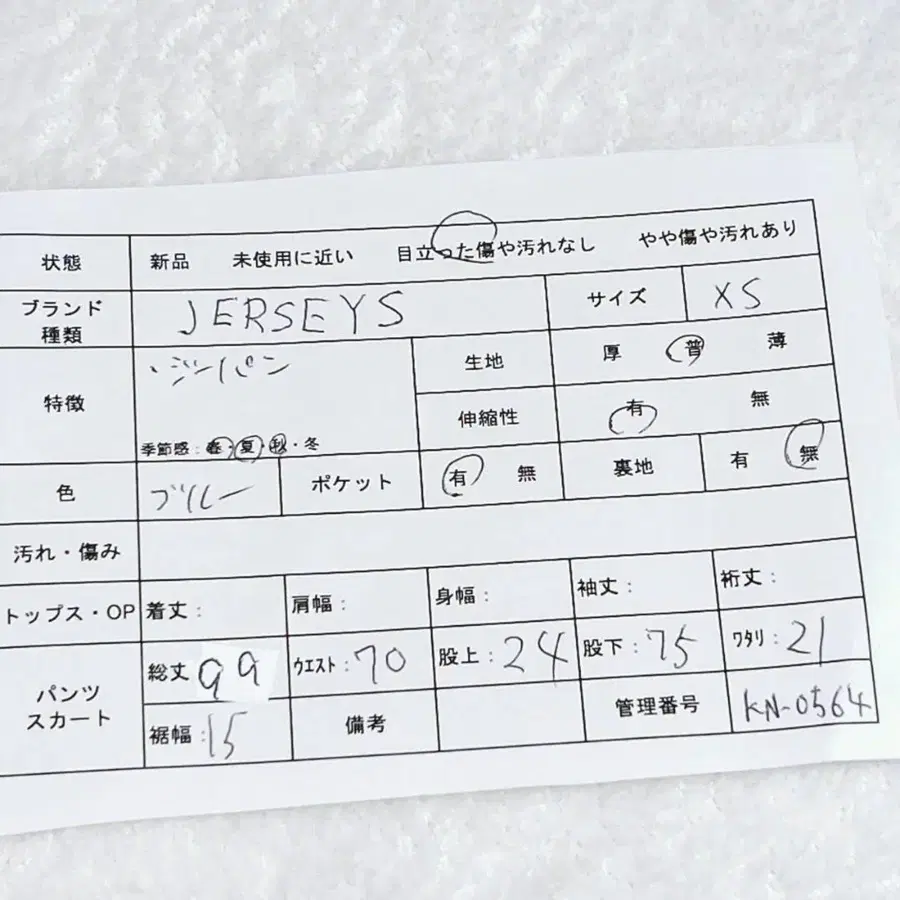 状態 新品 未使用に近い 目立った傷や汚れなし やや傷や汚れあり
ブランド
種類 JERSEYS サイズ XS
特徴 ・ジーパン 生地 厚 普 薄
季節感:春・夏・秋・冬 伸縮性 有 無
色 ブルー ポケット 有 無 裏地 有 無
汚れ・傷み
トップス・OP 着丈: 肩幅: 身幅: 袖丈: 裄丈:
パンツ
スカート 総丈 99 ウエスト:70 股上:24 股下:75 ワタリ:21
裾幅:15 備考 管理番号 KN-0564